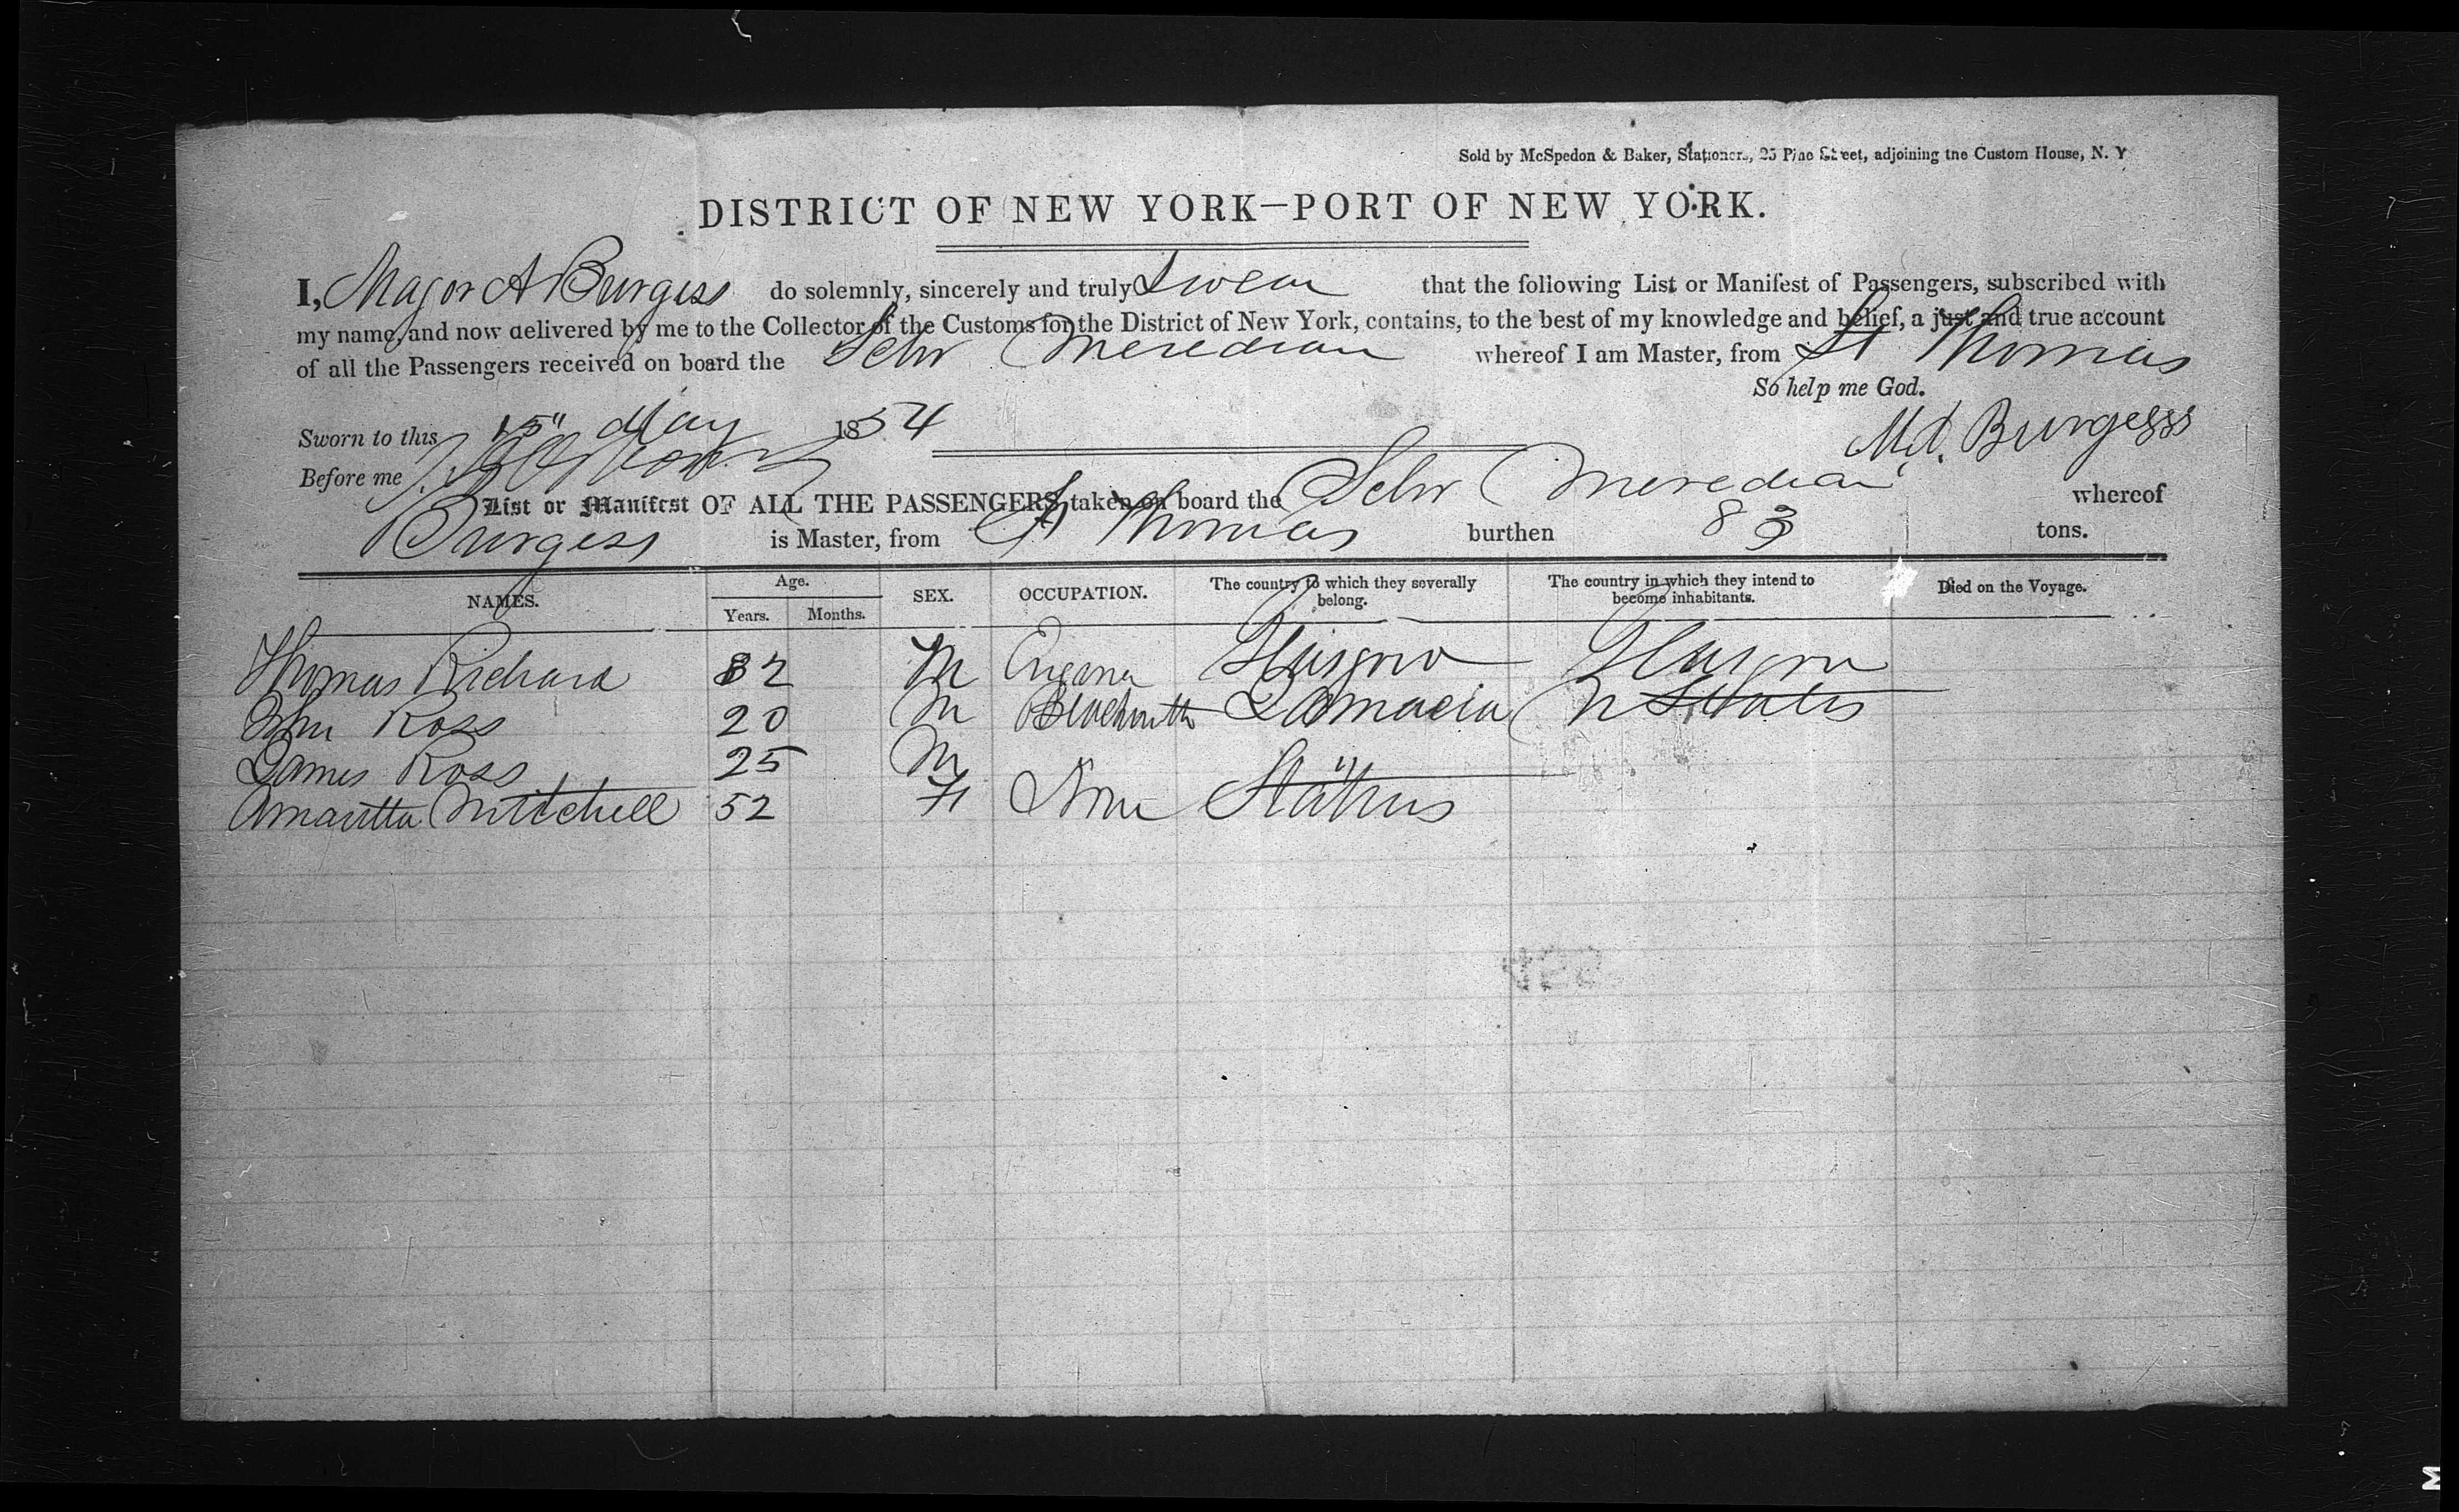 Sold by McSpedon & Baker, Stationers, 25 Pine Street, adjoining the Custom House, N. Y
DISTRICT OF NEW YORK—PORT OF NEW YORK.
I, Major A Burgess do solemnly, sincerely and truly Swear that the following List or Manifest of Passengers, subscribed with
my name, and now delivered by me to the Collector of the Customs for the District of New York, contains, to the best of my knowledge and belief, a just and true account
of all the Passengers received on board the Schr Meredian whereof I am Master, from St Thomas
So help me God.
Sworn to this 15" May 1854
M.A. Burgess
Before me
List or Manifest OF ALL THE PASSENGERS taken on board the Schr Meredian whereof
Burgess is Master, from St Thomas burthen 83 tons.
NAMES. Age. Years. Months. SEX. OCCUPATION. The country to which they severally belong. The country in which they intend to become inhabitants. Died on the Voyage.
Thomas Richard 32 M Glasgow Glasgow
Wm Ross 20 M Blacksmith Jamacia States
James Ross 25 M "
Mitchell 52 F None